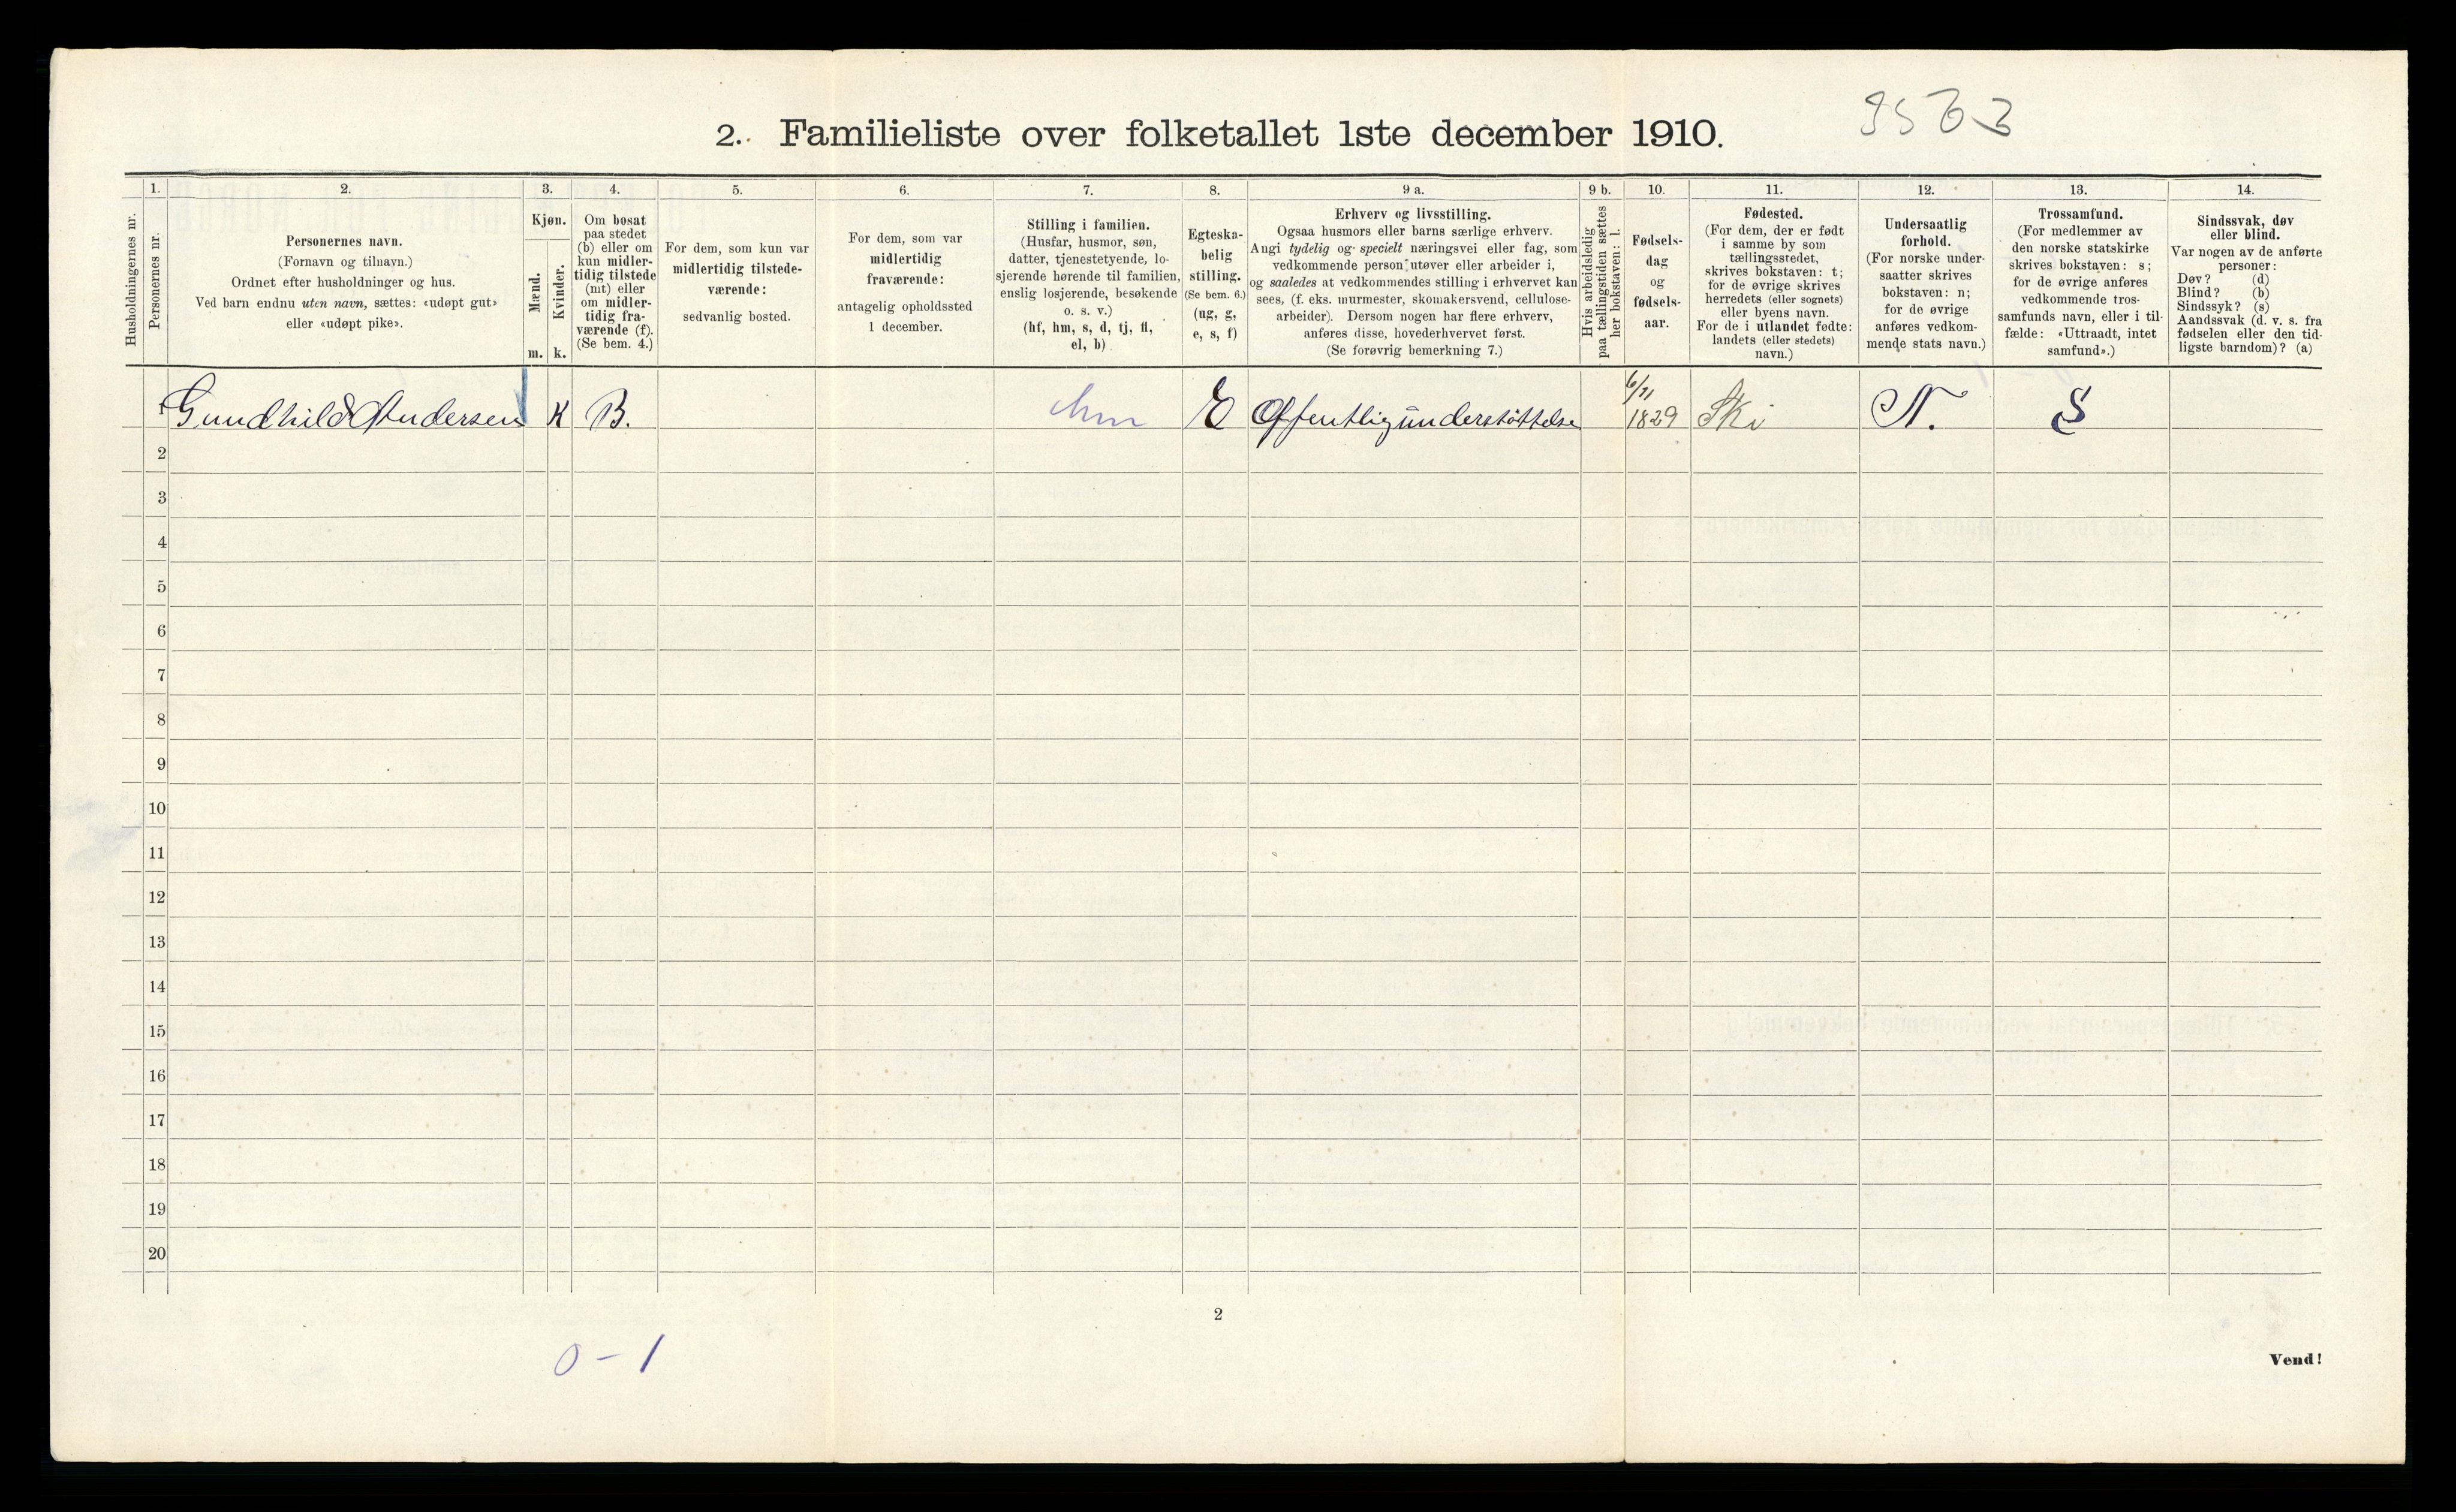 9563
2. Familieliste over folketallet 1ste december 1910.
1. 2. 3. 4. 5. 6. 7. 8. 9 a. 9 b. 10. 11. 12. 13. 14.
Husholdningernes nr.
Personernes nr.
Personernes navn.
(Fornavn og tilnavn.)
Ordnet efter husholdninger og hus.
Ved barn endnu uten navn, sættes: «udøpt gut»
eller «udøpt pike».
Kjøn.
Mænd.
Kvinder.
m. k.
Om bosat
paa stedet
(b) eller om
kun midler-
tidig tilstede
(mt) eller
om midler-
tidig fra-
værende (f).
(Se bem. 4.)
For dem, som kun var
midlertidig tilstede-
værende:
sedvanlig bosted.
For dem, som var
midlertidig
fraværende:
antagelig opholdssted
1 december.
Stilling i familien.
(Husfar, husmor, søn,
datter, tjenestetyende, lo-
sjerende hørende til familien,
enslig losjerende, besøkende
o. s. v.)
(hf, hm, s, d, tj, fl,
el, b)
Egteska-
belig
stilling.
(Se bem. 6.)
(ug, g,
e, s, f)
Erhverv og livsstilling.
Ogsaa husmors eller barns særlige erhverv.
Angi tydelig og specielt næringsvei eller fag, som
vedkommende person utøver eller arbeider i,
og saaledes at vedkommendes stilling i erhvervet kan
sees, (f. eks. murmester, skomakersvend, cellulose-
arbeider). Dersom nogen har flere erhverv,
anføres disse, hovederhvervet først.
(Se forøvrig bemerkning 7.)
Hvis arbeidsledig
paa tællingstiden sættes
her bokstaven: l.
Fødsels-
dag
og
fødsels-
aar.
Fødested.
(For dem, der er født
i samme by som
tællingsstedet,
skrives bokstaven: t;
for de øvrige skrives
herredets (eller sognets)
eller byens navn.
For de i utlandet fødte:
landets (eller stedets)
navn.)
Undersaatlig
forhold.
(For norske under-
saatter skrives
bokstaven: n;
for de øvrige
anføres vedkom-
mende stats navn.)
Trossamfund.
(For medlemmer av
den norske statskirke
skrives bokstaven: s;
for de øvrige anføres
vedkommende tros-
samfunds navn, eller i til-
fælde: «Uttraadt, intet
samfund».)
Sindssvak, døv
eller blind.
Var nogen av de anførte
personer:
Døv? (d)
Blind? (b)
Sindssyk? (s)
Aandssvak (d. v. s. fra
fødselen eller den tid-
ligste barndom)? (a)
1 Gundhild Andersen K B. hm E Offentlig understøttelse 6/11 1829 Ski N. S
2
3
4
5
6
7
8
9
10
11
12
13
14
15
16
17
18
19
20
2
0 - 1
Vend!